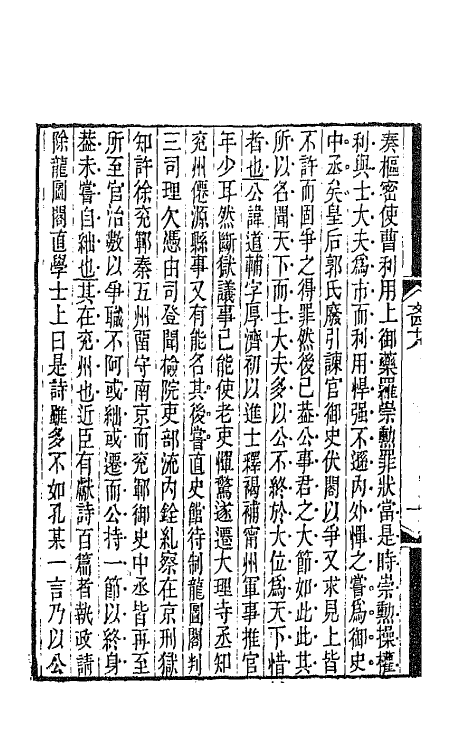 奏樞密使曹利用上御藥羅崇勳罪狀當是時崇勳操權
利與士大夫爲市而利用悍强不遜內外憚之嘗爲御史
中丞矣皇后郭氏廢引諫官御史伏閤以爭又求見上皆
不許而固爭之得罪然後已蓋公事君之大節如此此其
所以名聞天下而士大夫多以公不終於大位爲天下惜
者也公諱道輔字厚濟初以進士釋褐補甯州軍事推官
年少耳然斷獄議事已能使老吏憚驚遂遷大理寺丞知
兖州僊源縣事又有能名其後嘗直史館待制龍圖閣判
三司理欠憑由司登聞檢院吏部流內銓糺察在京刑獄
知許徐兖鄆秦五州留守南京而兖鄆御史中丞皆再至
所至官治數以爭職不阿或絀或遷而公持一節以終身
蓋未嘗自絀也其在兖州也近臣有獻詩百篇者執政請
除龍圖閣直學士上曰是詩雖多不如孔某一言乃以公